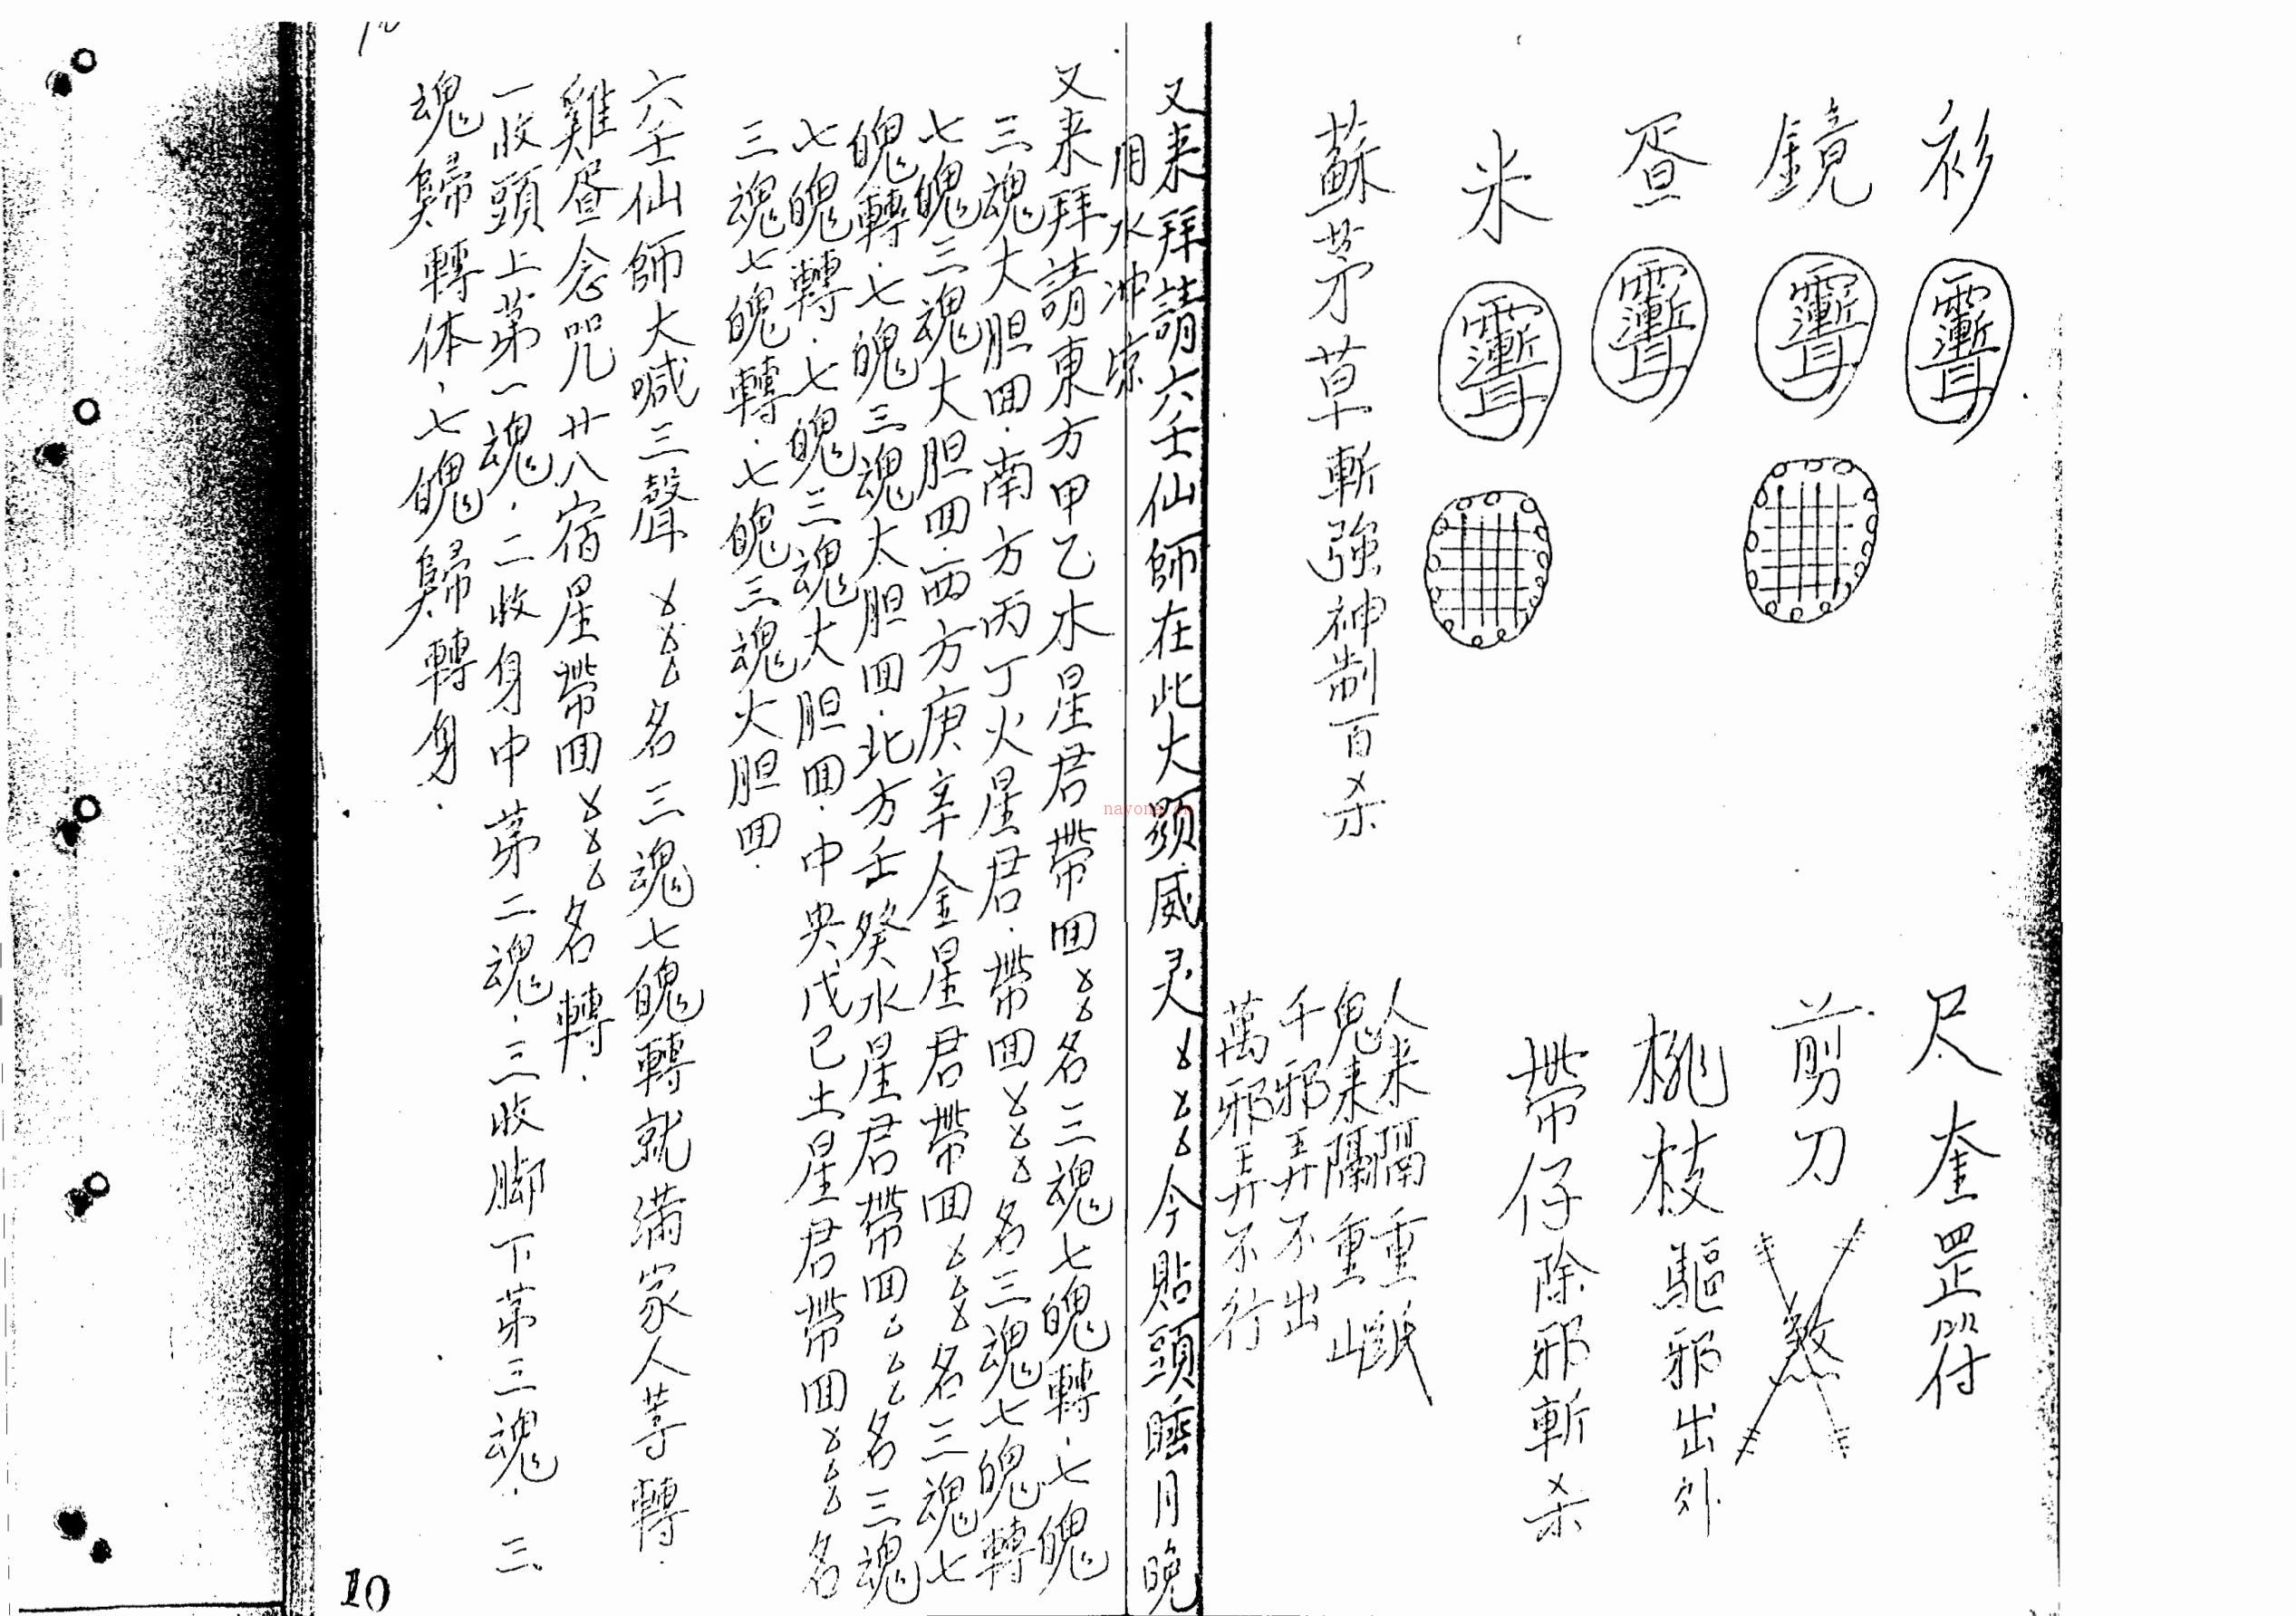 衫
鏡
昏
米
蘇茅草斬強神制百杀
尺奎罡符
剪刀
煞
桃枝驅邪出外
帶仔除邪斬杀
人来隔重
鬼来隔重山
千邪弄不出
萬邪弄不行
又来拜請六壬仙師在此大顕威灵ㄨㄨㄨ今貼頭睡月晚
用水冲凉
又来拜請東方甲乙木星君帶回ㄨㄨ名三魂七魄轉.七魄
三魂大胆回.南方丙丁火星君.帶回ㄨㄨㄨ名三魂七魄轉
七魄三魂大胆回.西方庚辛金星星君帶回ㄨㄨㄨ名三魂七
魄轉.七魄三魂大胆回.北方壬癸水星君帶回ㄨㄨㄨ名三魂
七魄轉.七魄三魂大胆回.中央戊己土星君帶回ㄨㄨㄨ名
三魂七魄轉.七魄三魂大胆回.
六壬仙師大喊三聲 ㄨㄨㄨ名三魂七魄轉就满家人等轉.
雞昏念咒廿八宿星帶回ㄨㄨㄨ名轉.
一收頭上第一魂.二收身中第二魂.三收脚下第三魂.三
魂歸轉体、七魄歸轉身.
10
nayona.cn